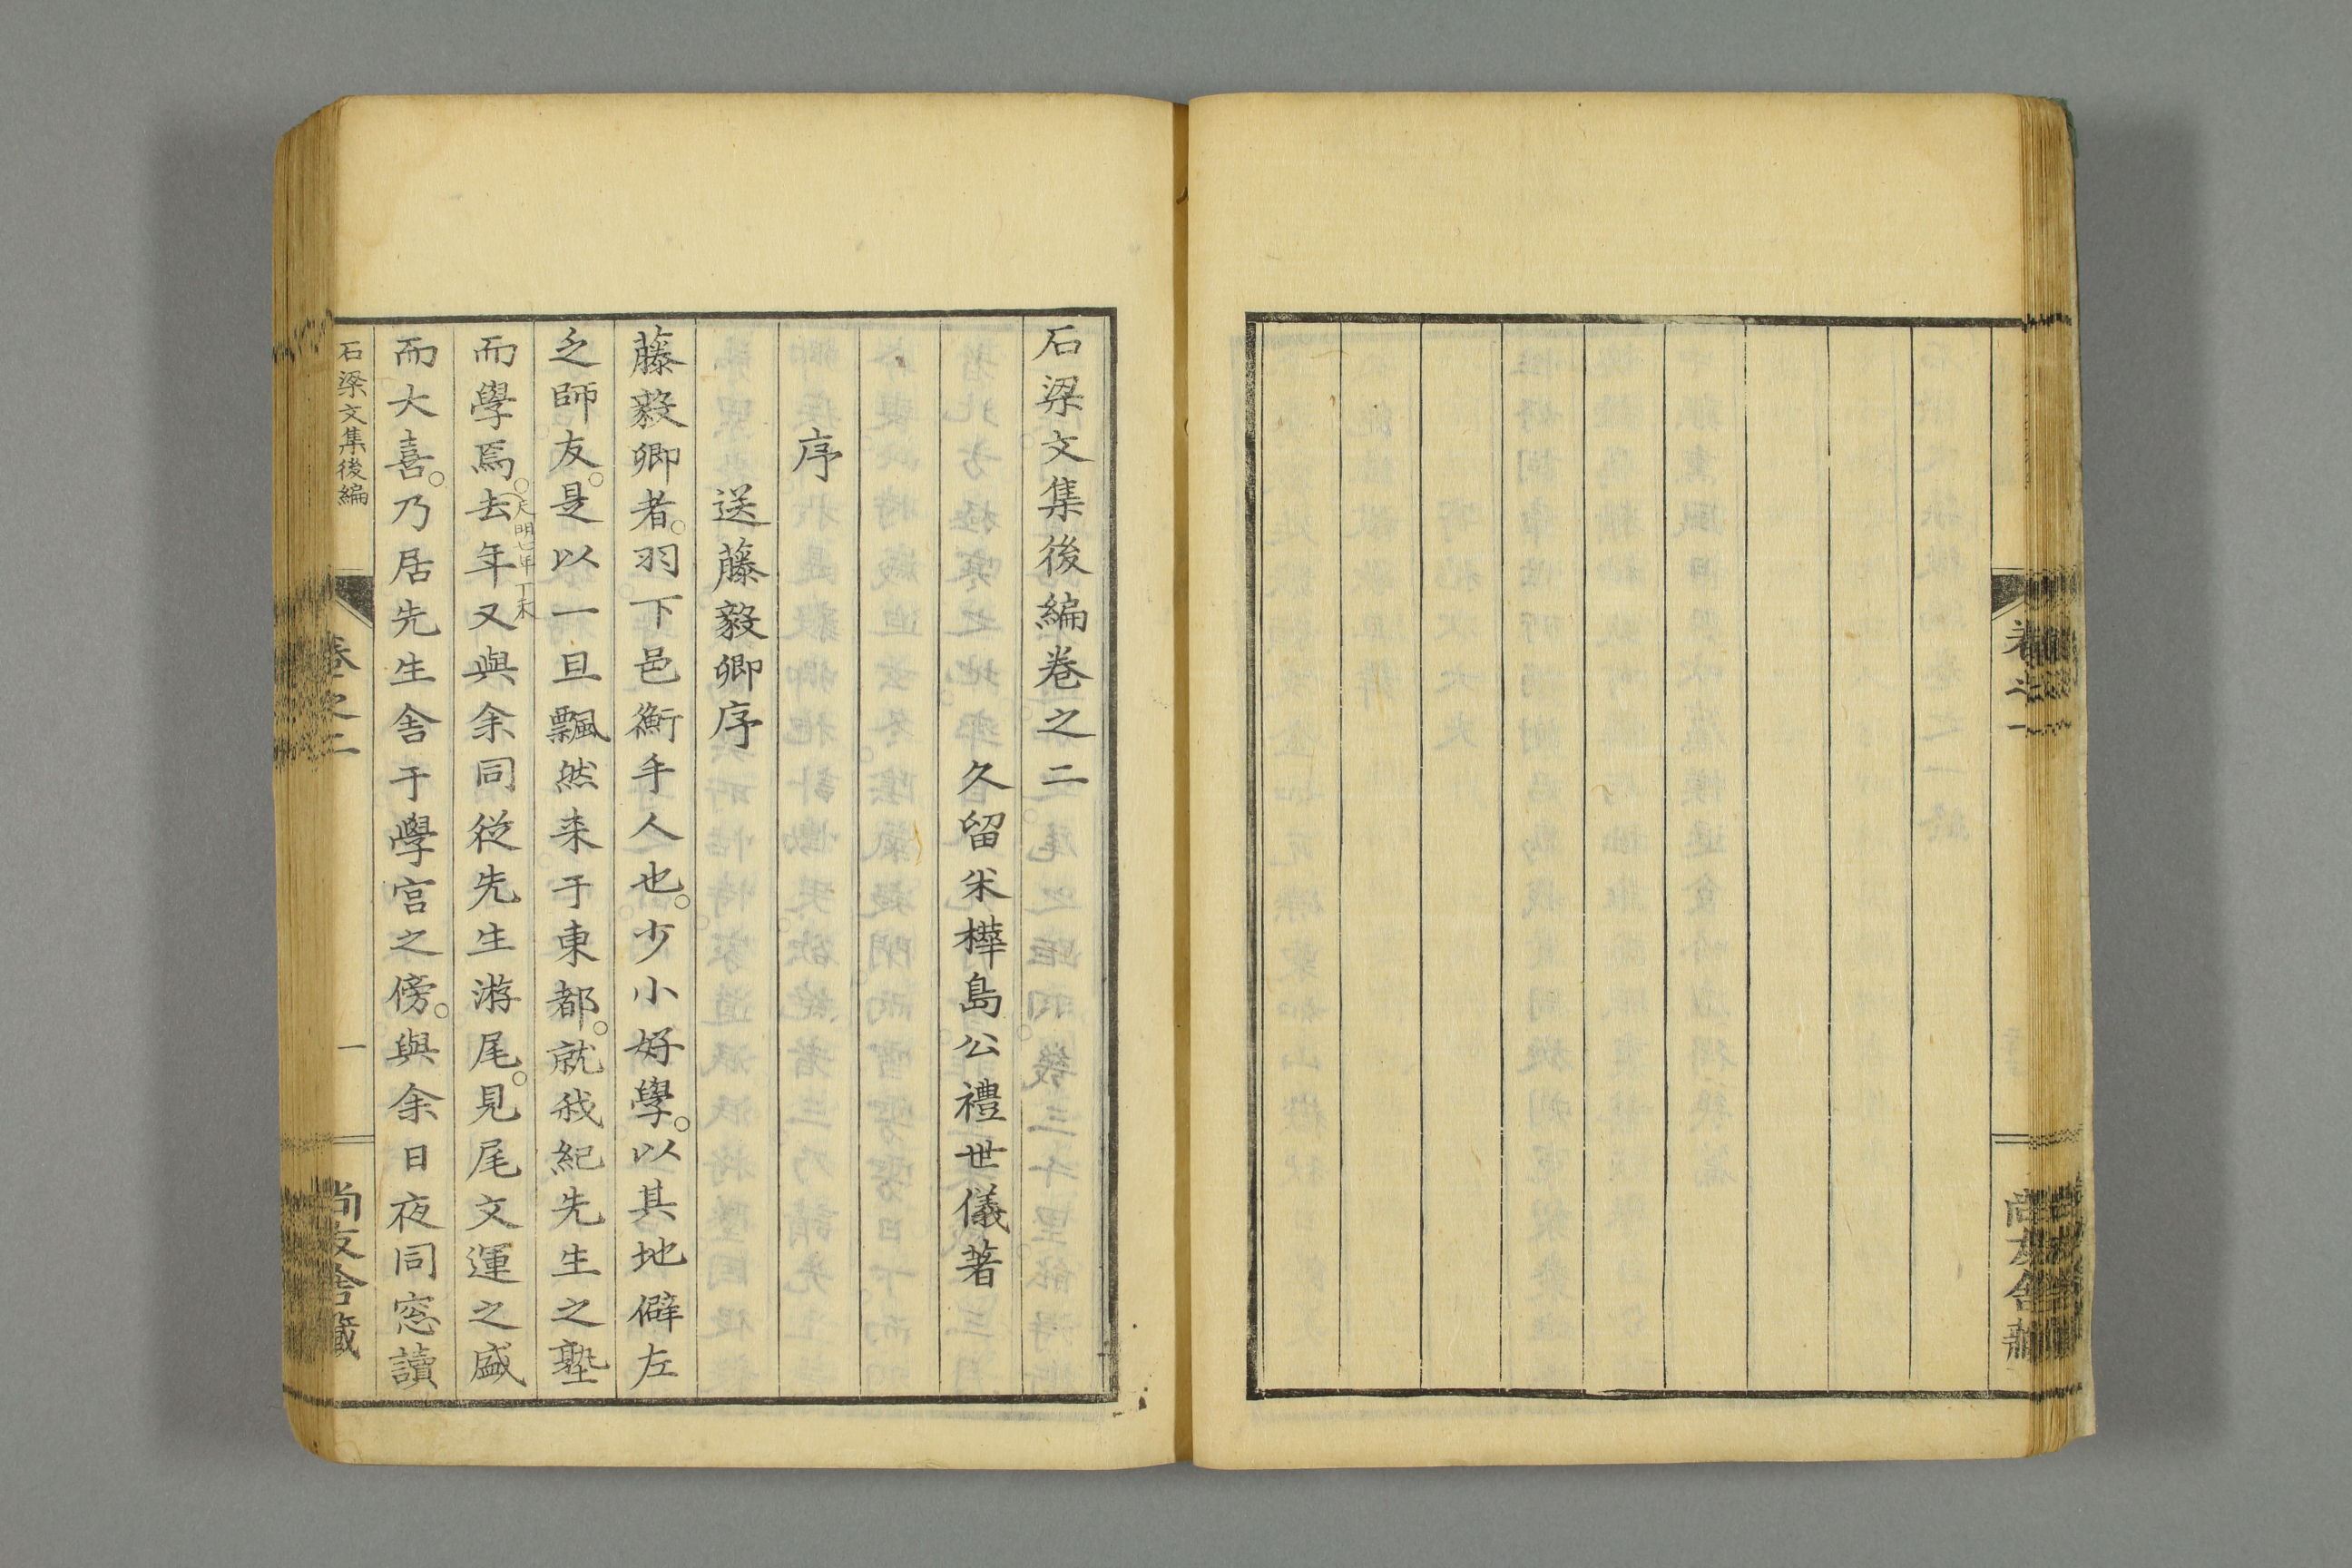 卷之一
尚友舍藏
石梁文集後編卷之二
久留米樺島公禮世儀著
序
送藤毅卿序
藤毅卿者。羽下邑衡手人也。少小好學。以其地僻左
乏師友。是以一旦飄然来于東都。就我紀先生之塾
而學焉。去年又與余同從先生游尾。見尾文運之盛
天明七年丁未
而大喜。乃居先生舍于學宮之傍。與余日夜同窓讀
石梁文集後編
卷之二
一
尚友舍藏